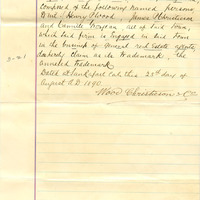 composed of the following named persons
to wit: Henry Wood, James Christieson
and Camille Grosjean all of said Town,
which said firm is engaged in said Town
in the business of General real Estate agents,
hereby claim as its Trademark, the
annexed Trademark
Dated at Sankford Cala this 25th day of
August A.D. 1890.
Wood Christieson & Co